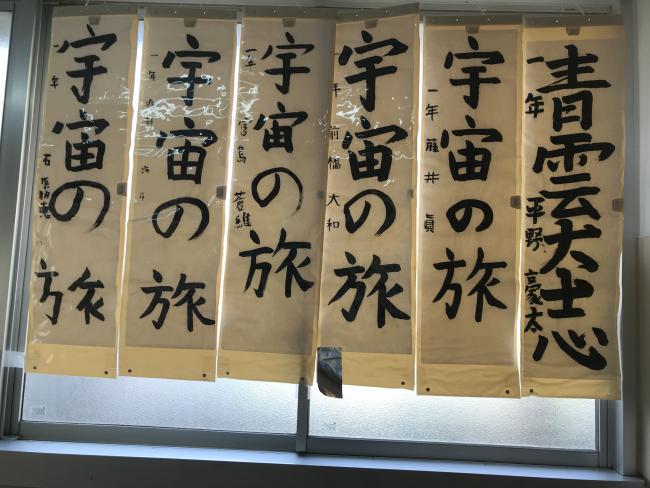 青雲大志
一年 平野 豪太
宇宙の旅
一年 藤井 貞
宇宙の旅
一年 前橋 大和
宇宙の旅
一年
宇宙の旅
一年
宇宙の旅
一年 石原